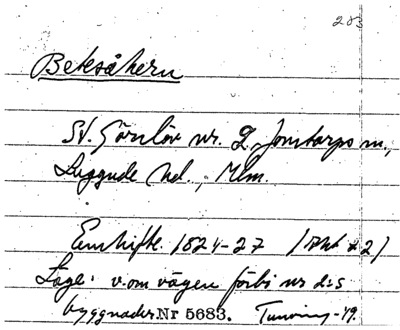 203
Beksåkern
Sv. Görslöv nr. 2, Jonstorps sn.,
Luggude hd., Mlm.
Enskifte 1824-27 (Akt 2)
Läge: v. om vägen förbi nr 2:s
byggnader. Nr 5683. Tuneving -49.